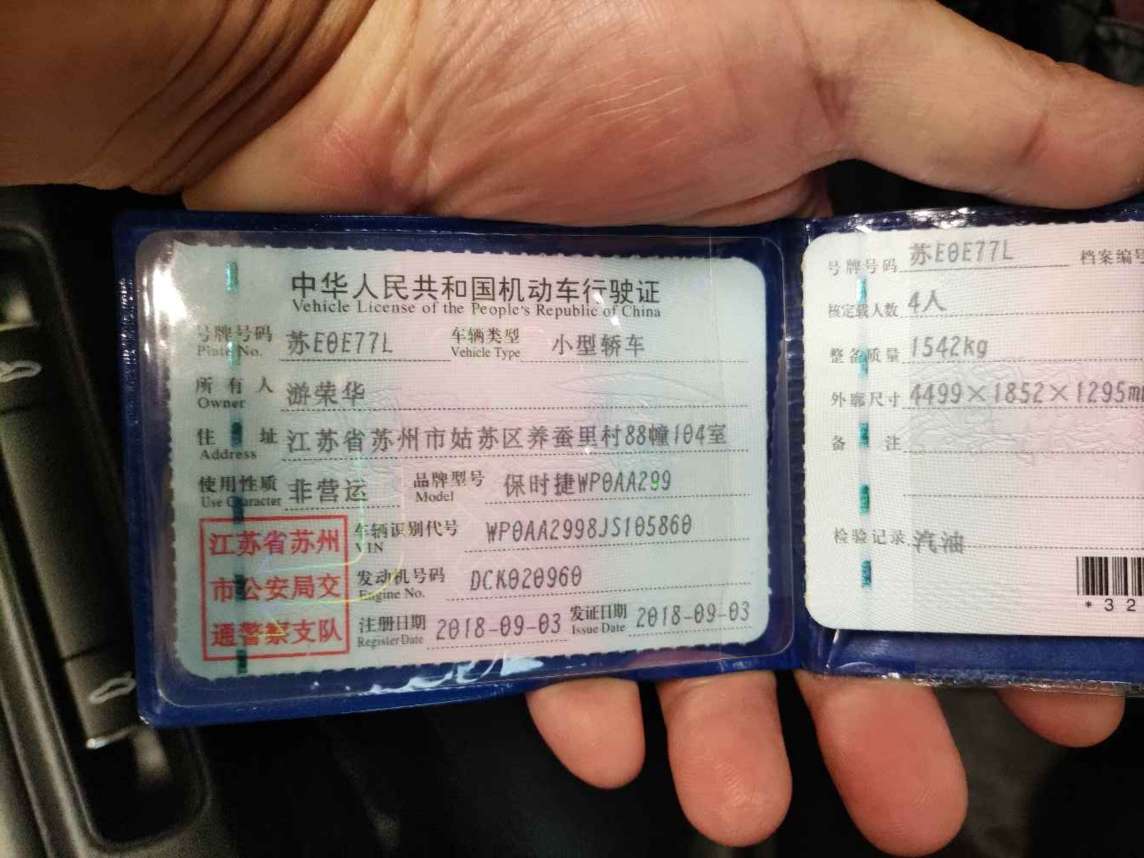 中华人民共和国机动车行驶证
Vehicle License of the People's Republic of China
号牌号码 苏E0E77L 车辆类型 小型轿车
Plate No. Vehicle Type
所有人 游荣华
Owner
住址 江苏省苏州市姑苏区养蚕里村88幢104室
Address
使用性质 非营运 品牌型号 保时捷WP0AA299
Use Character Model
江苏省苏州
市公安局交
通警察支队
车辆识别代号 WP0AA2998JS105860
VIN
发动机号码 DCK020960
Engine No.
注册日期 2018-09-03 发证日期 2018-09-03
Register Date Issue Date
号牌号码 苏E0E77L 档案编号
核定载人数 4人
整备质量 1542kg
外廓尺寸 4499×1852×1295mm
备注
检验记录 汽油
*32